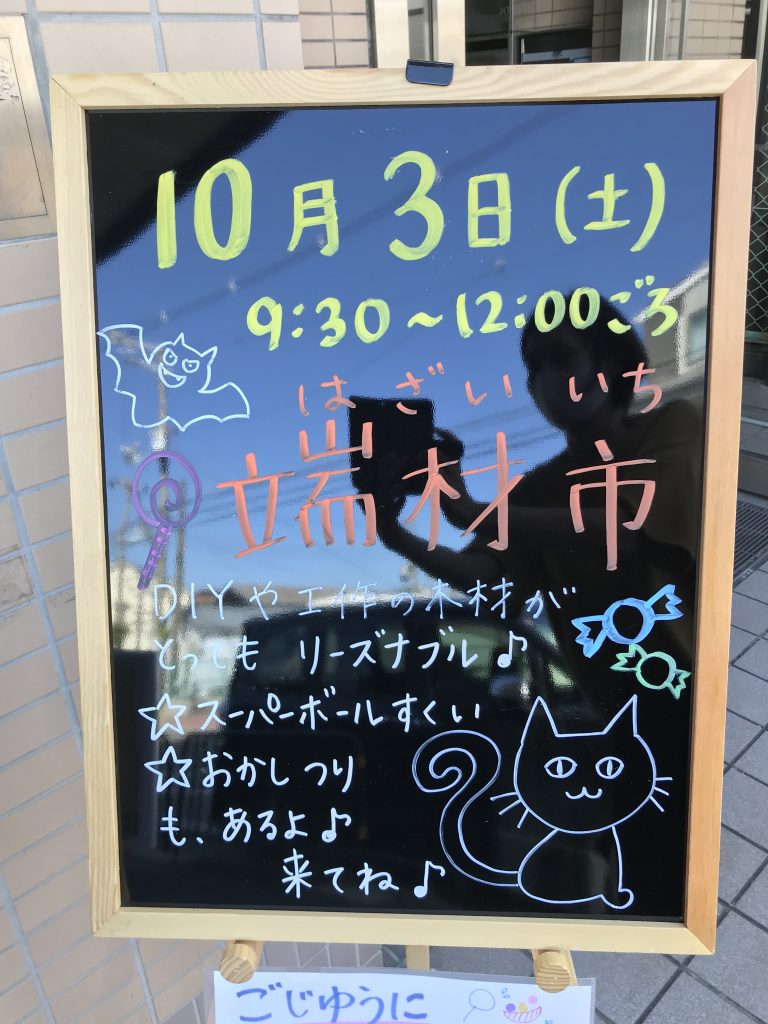 10月3日(土)
9:30~12:00ごろ
はざい いち
端材市
DIYや工作の木材が
とっても リーズナブル♪
☆スーパーボールすくい
☆おかしつり
も、あるよ♪
来てね♪
ごじゆうに